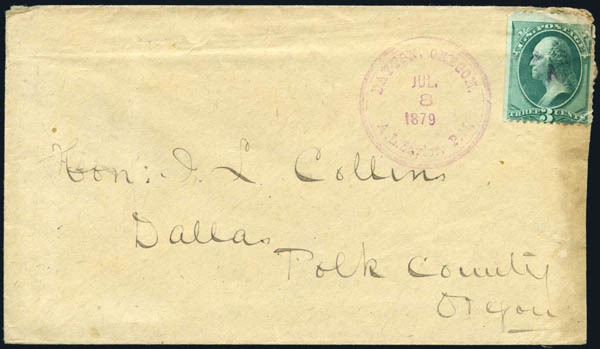 U.S. POSTAGE
THREE 3 CENTS
DAYTON, OREGON.
JUL.
8
1879
P.M.
Hon: J. L Collins
Dallas
Polk County
Oregon